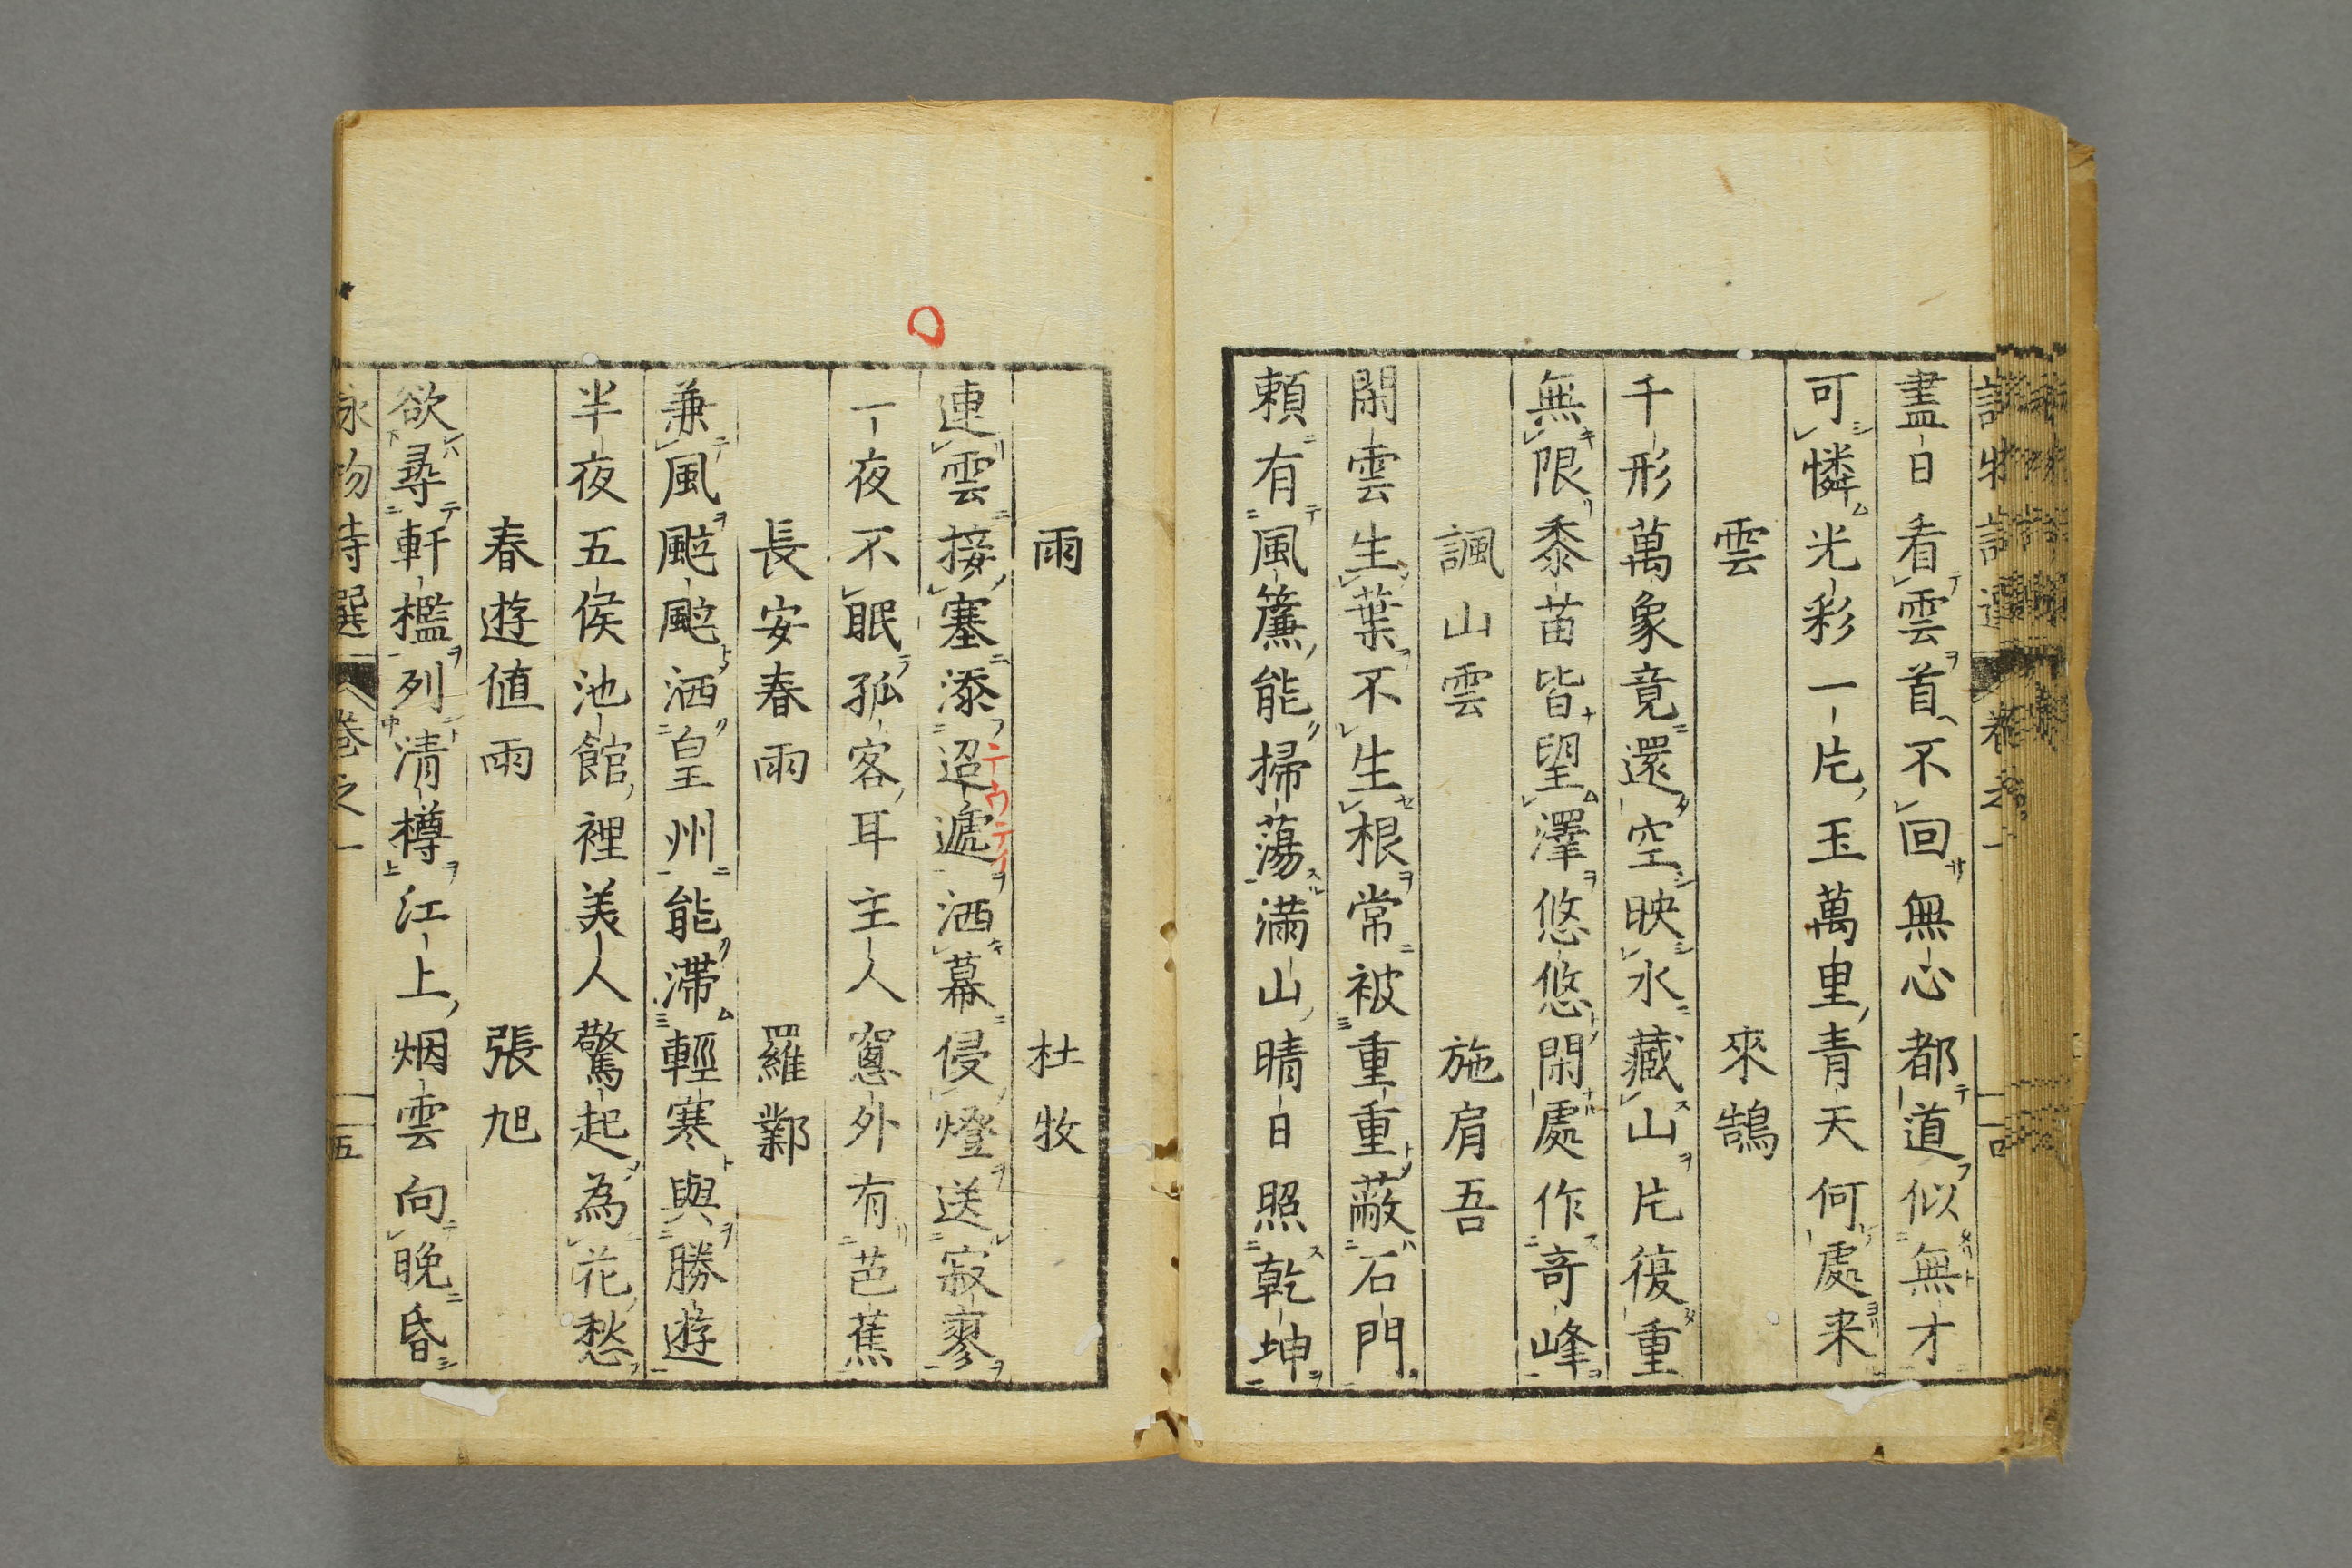 盡日看雲首不回無心都道似無才
可憐光彩一片玉萬里青天何處来
雲　來鵠
千形萬象竟還空映水藏山片復重
無限黍苗皆望澤悠悠閑處作奇峰
諷山雲　施肩吾
閑雲生葉不生根常被重重蔽石門
頼有風簾能掃蕩滿山晴日照乾坤
雨　杜牧
連雲接塞添迢遞洒幕侵燈送寂寥
テウテイ
一夜不眠孤客耳主人窻外有芭蕉
長安春雨　羅鄴
兼風颭颭洒皇州能滯輕寒與勝遊
半夜五侯池館裡美人驚起為花愁
春遊値雨　張旭
欲尋軒檻列清樽江上烟雲向晚昏
詠物詩選　卷之一　五